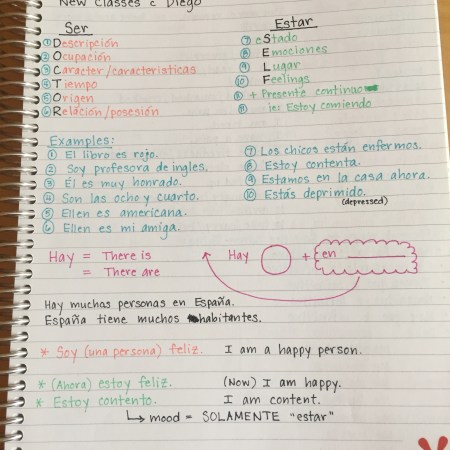 New Classes c Diego
Ser
Estar
① Descripción
② Ocupación
③ Caracter/caracteristicas
④ Tiempo
⑤ Origen
⑥ Relación/posesión
⑦ eStado
⑧ Emociones
⑨ Lugar
⑩ Feelings
+ Presente continuo
⑪ ie: Estoy comiendo
Examples:
① El libro es rojo.
② Soy profesora de ingles.
③ Él es muy honrado.
④ Son las ocho y cuarto.
⑤ Ellen es americana.
⑥ Ellen es mi amiga.
⑦ Los chicos están enfermos.
⑧ Estoy contenta.
⑨ Estamos en la casa ahora.
⑩ Estás deprimido.
(depressed)
Hay = There is
= There are
Hay + en
Hay muchas personas en España.
España tiene muchos habitantes.
* Soy (una persona) feliz. I am a happy person.
* (Ahora) estoy feliz. (Now) I am happy.
* Estoy contento. I am content.
↳ mood = SOLAMENTE "estar"